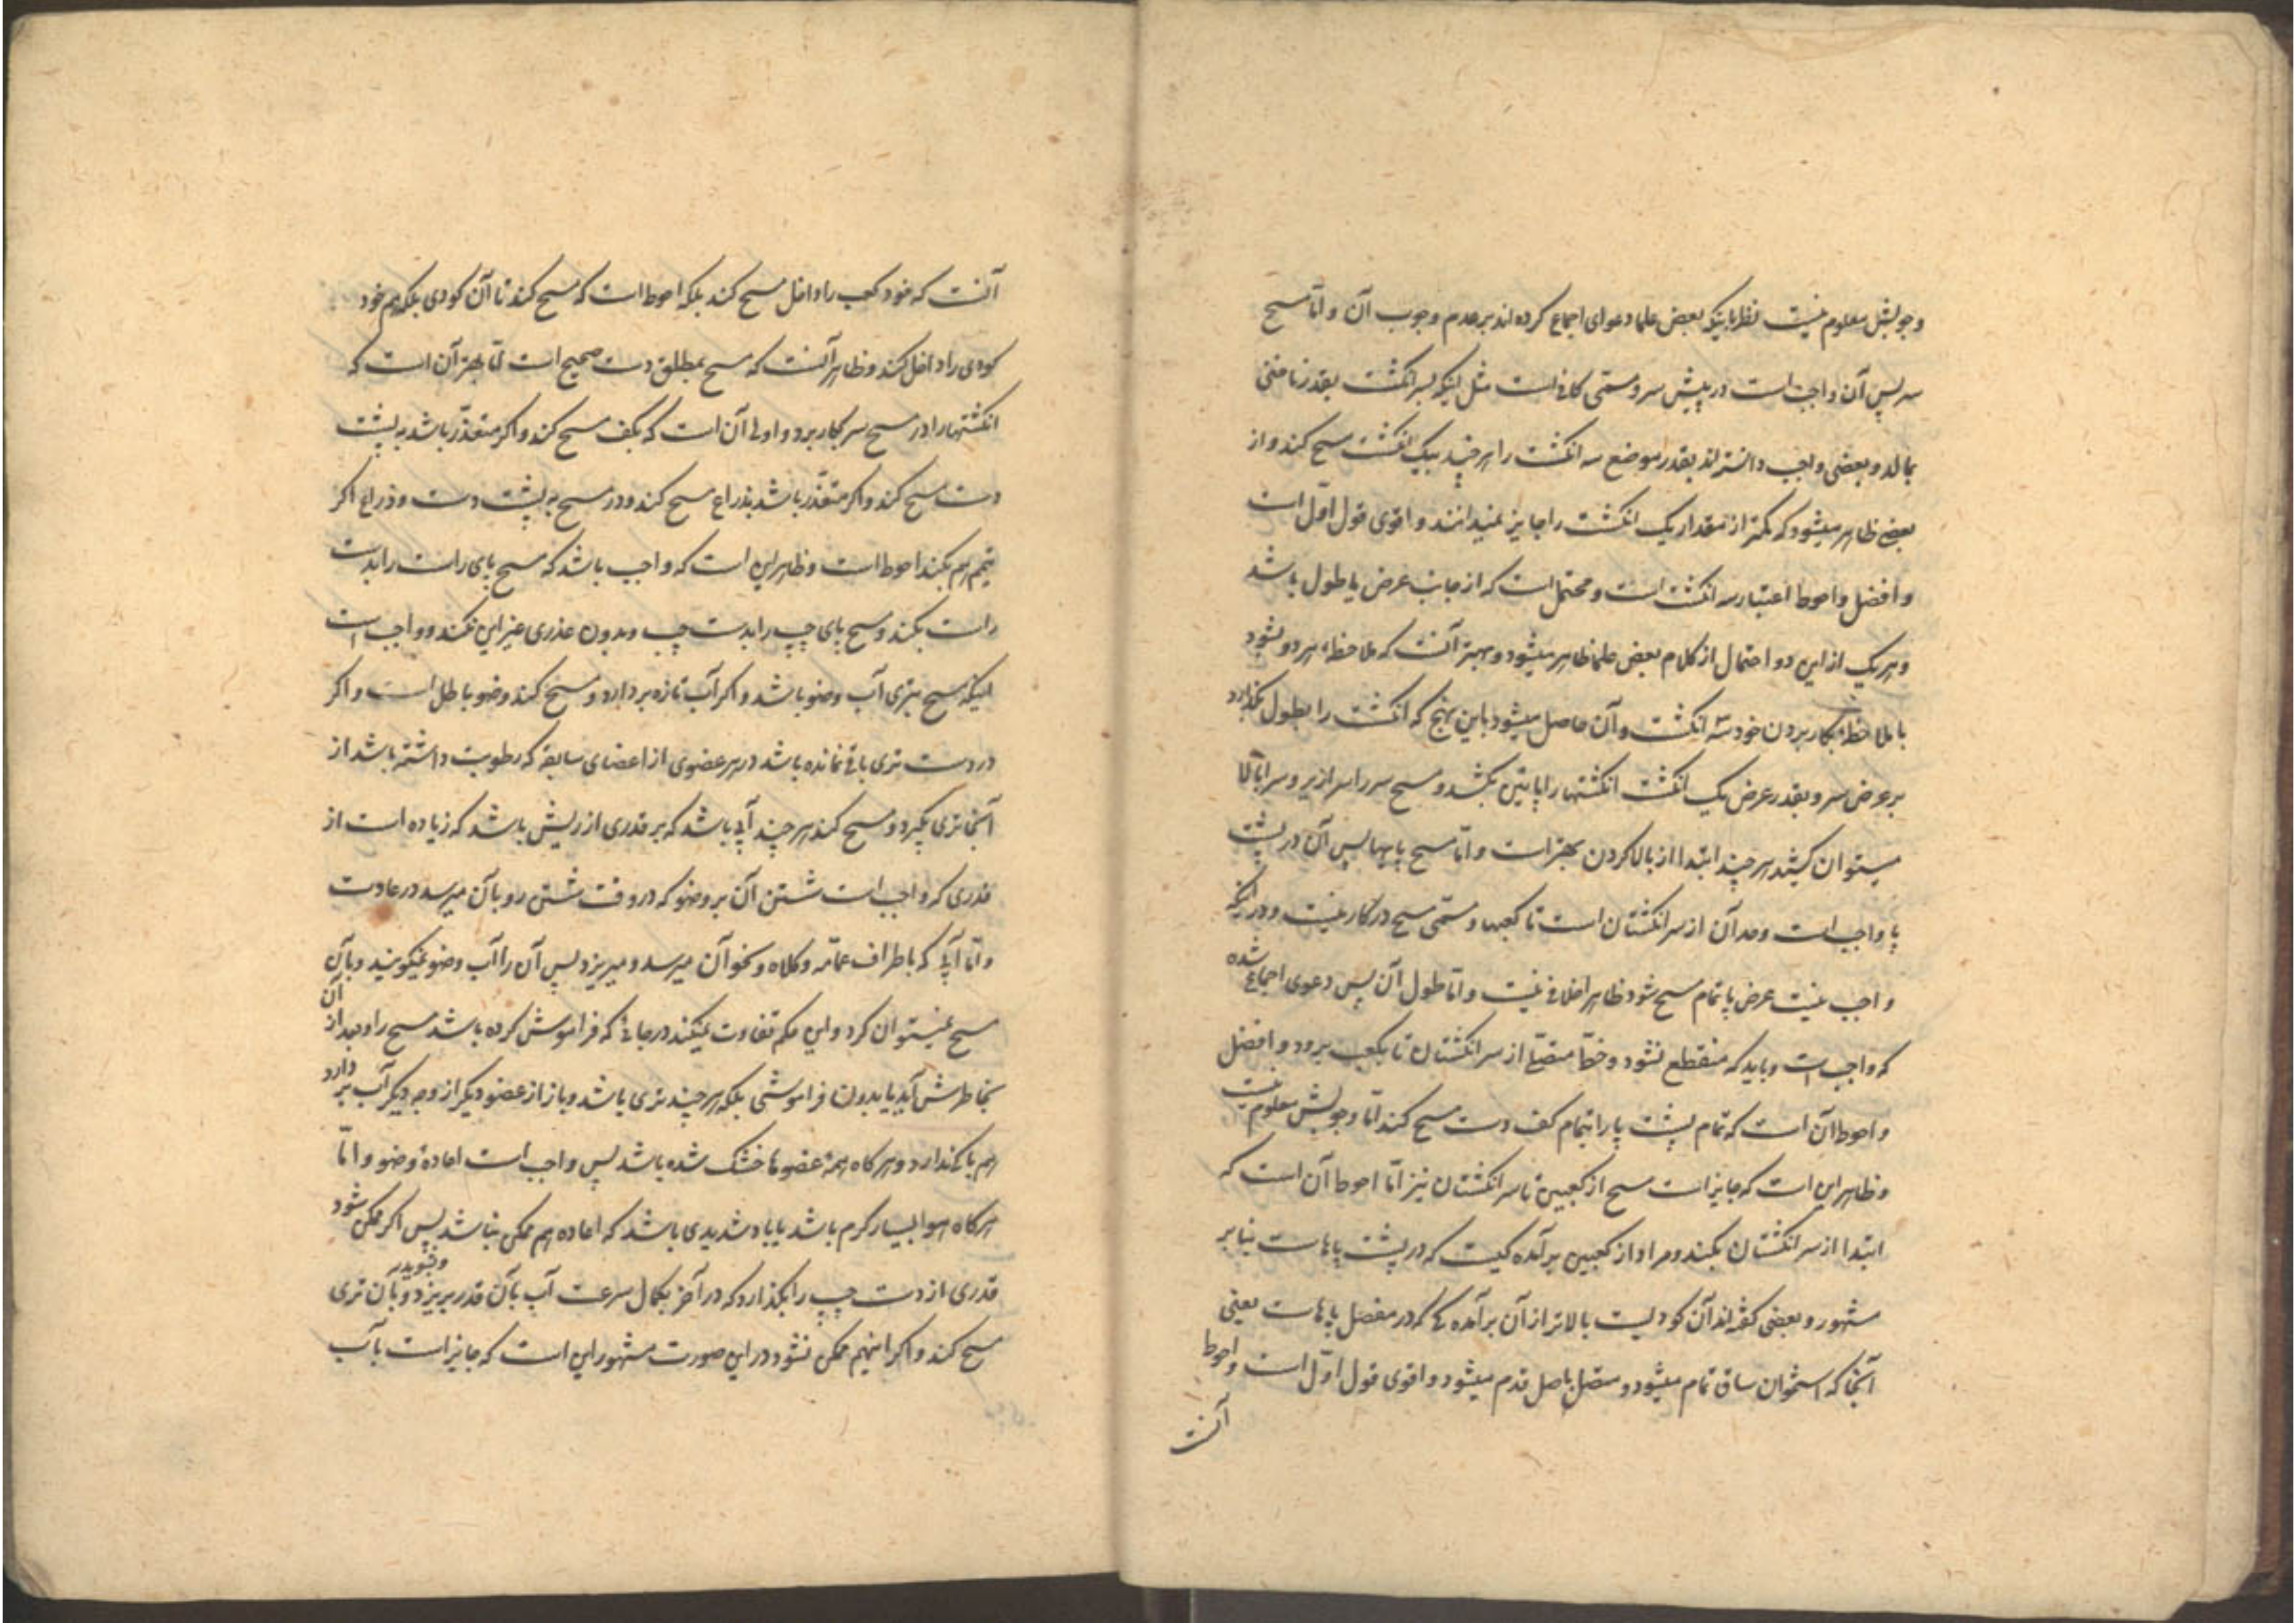 وجوبش معلوم نیست نظر باینکه بعض علما دعوای اجماع کرده اند بر عدم وجوب آن و امّا مسح
سر پس آن واجب است در پیش سر و مسمّی کافی است مثل اینکه سر انگشت بقدر ناخنی
بمالد و بعضی واجب دانسته اند بقدر موضع سه انگشت را هر چند بیک انگشت مسح کند و از
بعضی ظاهر میشود که کمتر از مقدار یک انگشت را جایز نمیدانند و اقوی قول اوّل است
و افضل و احوط اعتبار سه انگشت است و محتمل است که از جانب عرض یا طول باشد
و هر یک از این دو احتمال از کلام بعض علما ظاهر میشود و بهتر آنست که ملاحظهٔ هر دو بشود
با ملاحظهٔ بکار بردن خود سه انگشت و آن حاصل میشود باین نهج که انگشت را بطول بگذارد
بر عرض سر و بقدر عرض یک انگشت انگشتها را پایین بکشد و مسح سر را سرازیر و سر بالا
میتوان کشید هر چند ابتدا از بالا کردن بهتر است و امّا مسح پاها پس آن در پشت
پا واجب است و حد آن از سر انگشتان است تا کعبها و مسمّی مسح در کار نیست و در اینکه
واجب نیست عرض پا تمام مسح شود ظاهر اخلافی نیست و امّا طول آن پس دعوی اجماع شده
که واجب است و باید که منقطع نشود و خطّا متصلّی از سر انگشتان تا بکعب برود و افضل
و احوط آن است که تمام پشت پا را بتمام کف دست مسح کند امّا وجوبش معلوم نیست
و ظاهر این است که جایز است مسح از کعبین تا سر انگشتان نیز امّا احوط آن است که
ابتدا از سر انگشتان بکند و مراد از کعبین برآمده کیست که در پشت پاهاست بنا بر
مشهور و بعضی گفته اند آن کودیست بالاتر از آن برآمده کی که در مفصل پاهاست یعنی
آنجا که استخوان ساق تمام میشود و متصل باصل قدم میشود و اقوی قول اوّل است و احوط
آنست
آنست که خود کعب را داخل مسح کند بلکه احوط است که مسح کند تا آن کودی بلکه هم خود
کودی را داخل کند و ظاهر آنست که مسح بمطلق دست صحیح است امّا بهتر آن است که
انگشتها را در مسح سر بکار برد و اولی آن است که بکف مسح کند و اکر متعذّر باشد به پشت
دست مسح کند و اکر متعذّر باشد بذراع مسح کند و در مسح به پشت دست و ذراع اکر
تیمّم هم بکند احوط است و ظاهر این است که واجب باشد که مسح پای راست را بدست
راست بکند و مسح پای چپ را بدست چپ و بدون عذری غیر این نکند و واجب است
اینکه مسح بتری آب وضو باشد و اکر آب تازه بردارد و مسح کند وضو باطل است و اکر
در دست تری باقی نمانده باشد در هر عضوی از اعضای سابقه که رطوبت داشته باشد از
آنجا تری بکیرد و مسح کند هر چند آبی باشد که بر قدری از ریش باشد که زیاده است از
قدری که واجب است شستن آن بر وضو که در وقت شستن رو بآن میرسد در عادت
و امّا آبی که باطراف عمّامه و کلاه و نحو آن میرسد و میریزد پس آن را آب وضو نمیکویند و بآن
مسح نمیتوان کرد و این حکم تفاوت نمیکند در جائی که فراموش کرده باشد مسح را و بعد از آن
بخاطرش آید یا بدون فراموشی بلکه هر چند تری باشد و باز از عضو دیکر از وجه دیکر آب بر دارد
هم باکی ندارد و هر کاه همهٔ عضوها خشک شده باشد پس واجب است اعادهٔ وضو و امّا
هر کاه هوا بسیار کرم باشد یا باد شدیدی باشد که اعاده هم ممکن نباشد پس اکر ممکن شود
قدری از دست چپ را بکذارد که در آخر بکمال سرعت آب بآن قدر بریزد و بشوید و بآن تری
مسح کند و اکر اینهم ممکن نشود در این صورت مشهور این است که جایز است بآب